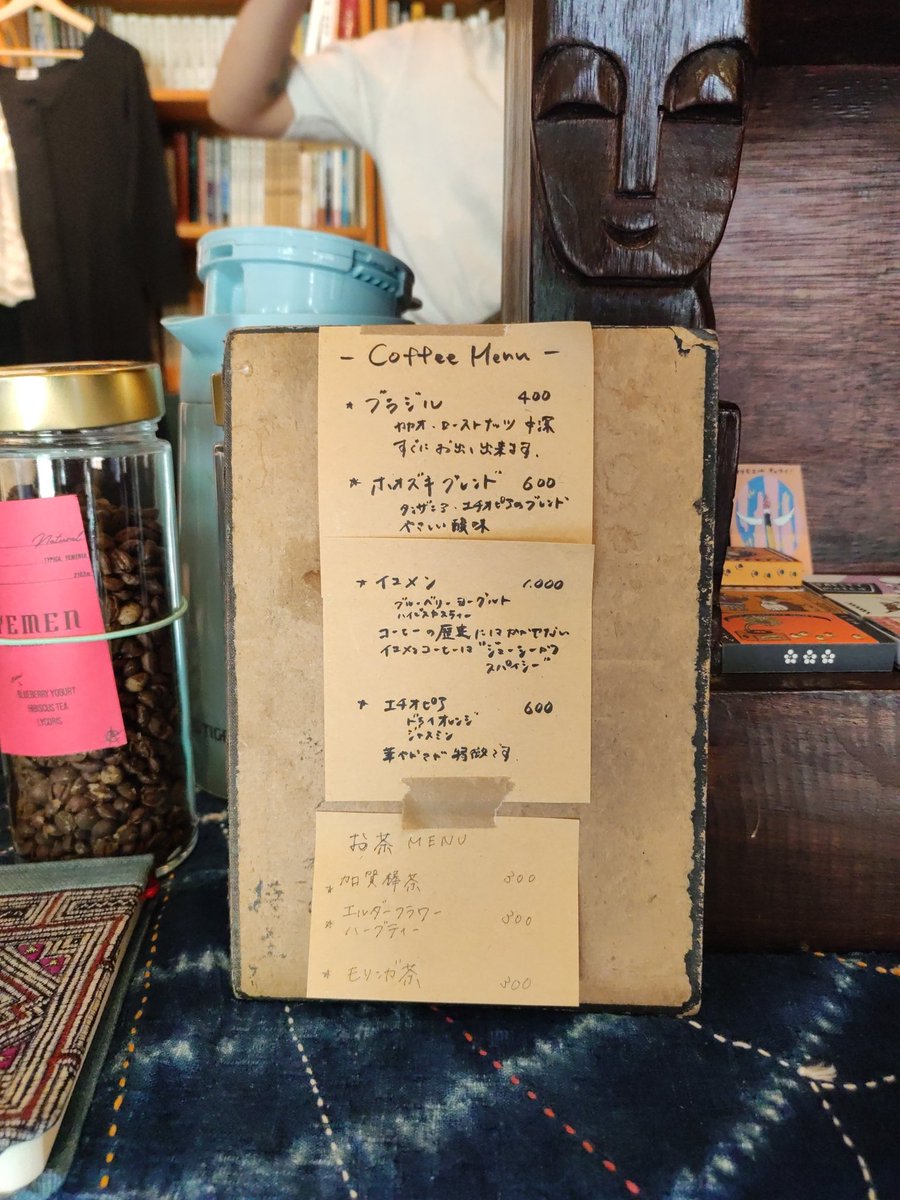 - Coffee Menu -
* ブラジル 400
カカオ・ローストナッツ 中深
すぐにお出し出来ます.
* ホオズキブレンド 600
タンザニア・エチオピアのブレンド
やさしい酸味
* イエメン 1,000
ブルーベリーヨーグルト
ハイビスカスティー
コーヒーの歴史にはかかせない
イエメンコーヒーは"ジューシーかつ
スパイシー"
* エチオピア 600
ドライオレンジ
ジャスミン
華やかさが特徴です.
お茶 MENU
* 加賀棒茶 500
* エルダーフラワー 500
ハーブティー
* モリンガ茶 500
Natural
YEMEN
BLUEBERRY YOGURT
HIBISCUS TEA
LYCORIS